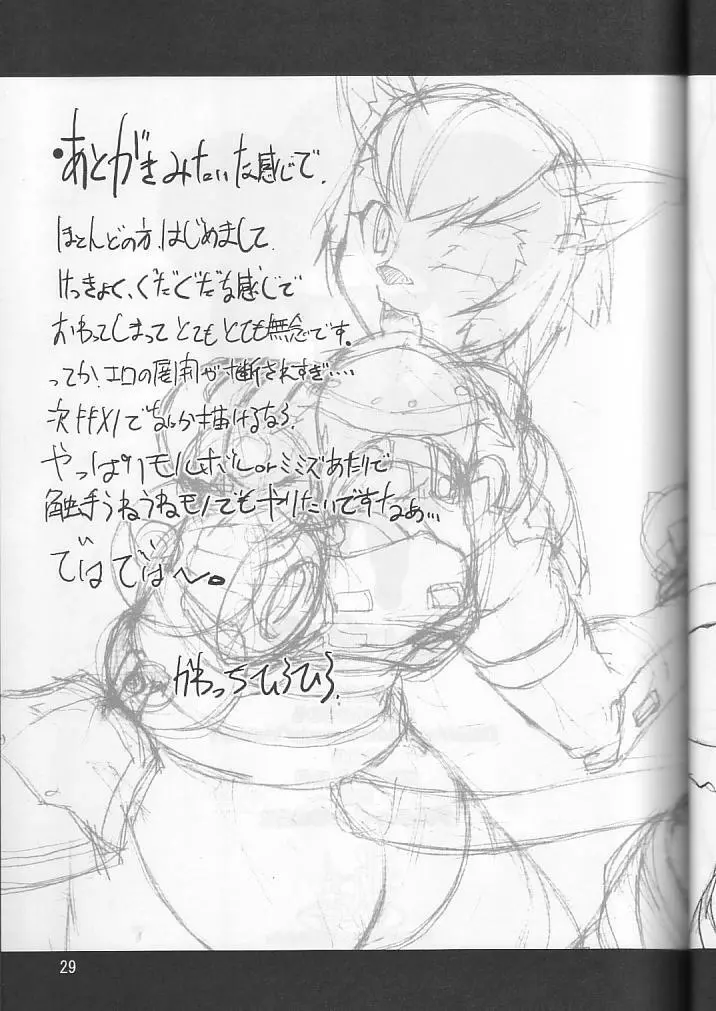 ・あとがきみたいな感じで.
ほとんどの方、はじめまして.
けっきょく、ぐだぐだな感じで
おわってしまってとてもとても無念です。
ってか、エロの展開が寸断されすぎ・・・・
次FFXIでなんか描けるなら、
やっぱりモルボルorミミズあたりで
触手うねうねモノでもやりたいですなぁ...
ではでは〜。
かわっちひろひろ.
29